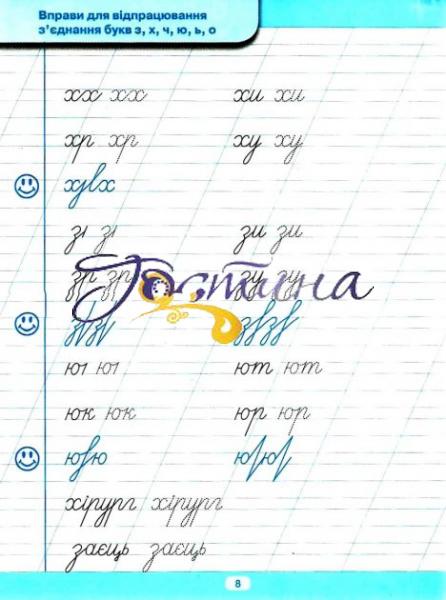 Вправи для відпрацювання
з'єднання букв з, х, ч, ю, ь, о
хх хх хи хи
хр хр ху ху
зи зи
зр зр зу зу
ют ют
юк юк юр юр
хірург хірург
заєць заєць
8